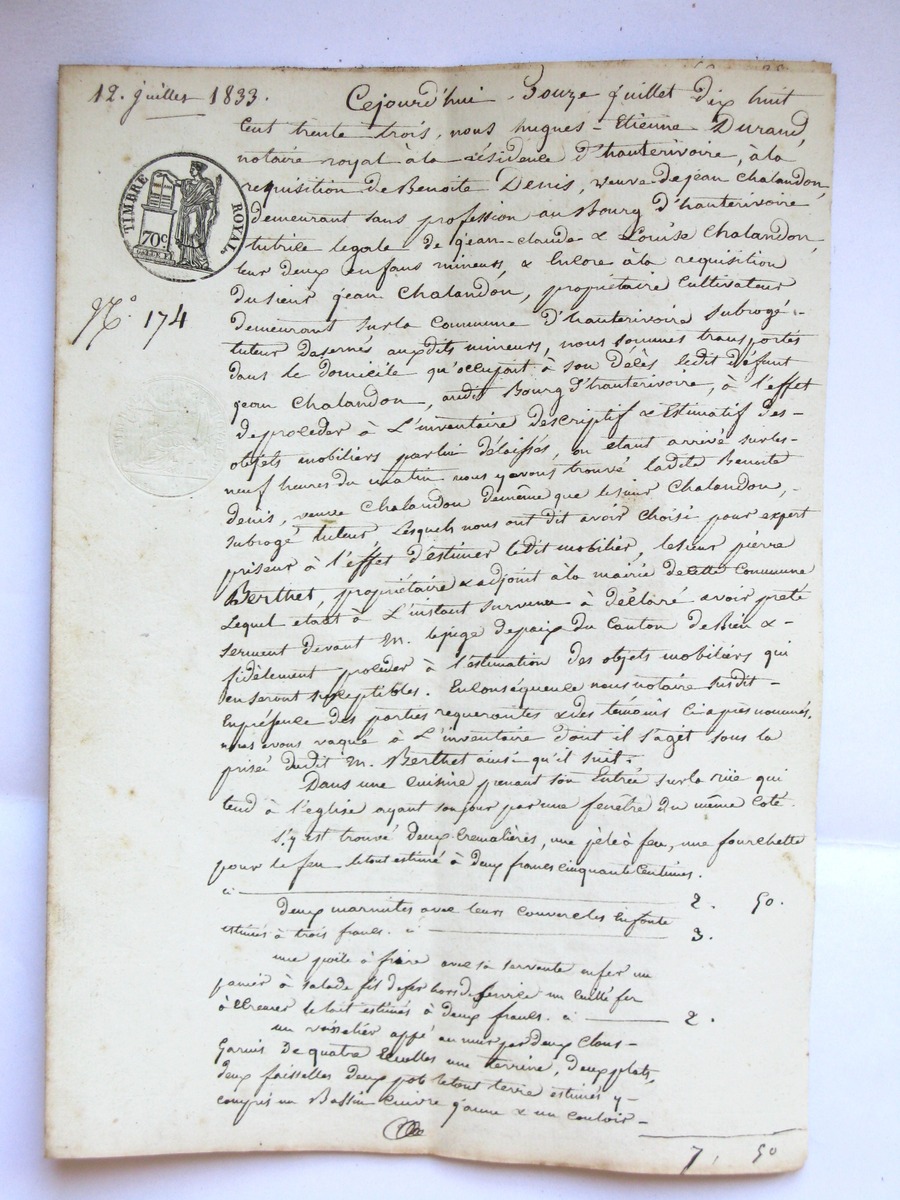 12. juillet 1833.
Cejourd'hui Douze juillet dix huit
cent trente trois, nous hugues-Etienne Durand,
notaire royal à la résidence d'hauterivoire, à la
requisition de Benoite Denis, veuve de jean Chalandon,
demeurant sans profession au Bourg d'hauterivoire
tutrice legale de jean-claude & Louise Chalandon
leur deux enfans mineurs, & Encore à la requisition
du sieur jean Chalandon, propriétaire Cultivateur
demeurant sur la Commune d'hauterivoire subrogé-
tuteur auxdits mineurs, nous sommes transportés
dans le domicile qu'occupait à son Décès ledit défunt
jean Chalandon, audit Bourg d'hauterivoire, à l'effet
de procéder à L'inventaire descriptif & Estimatif des-
objets mobiliers par lui délaissés, où etant arrivé sur les-
neuf heures du matin nous y avons trouvé ladite Benoite
denis, veuve Chalandon de même que le sieur Chalandon,-
subrogé tuteur, Lesquels nous ont dit avoir choisi pour expert
priseur à l'effet d'estimer ledit mobilier, le sieur pierre
Berthet propriétaire & adjoint à la mairie de cette Commune
Lequel étant à L'instant survenu à déclaré avoir preté
serment devant M. le juge de paix du Canton de &-
fidèlement proceder à l'estimation des objets mobiliers qui
en seront susceptibles. En Conséquence nous notaire susdit-
En présence des parties requerantes & des temoins Ci après nommés,
nous avons vaqué à L'inventaire dont il s'agit sous la
prisée dudit M. Berthet ainsi qu'il suit.
Dans une Cuisine prenant son Entrée sur la rüe qui
tend à l'eglise ayant son jour par une fenêtre du même Coté
s'y est trouvé deux Cremalières, une pèle à feu, une fourchette
pour le feu le tout estimé à deux francs cinquante Centimes.
ci 2. 50.
Deux marmites avec leurs couvercles En fonte
estimés à trois francs. ci 3.
une poile à frire avec sa servante en fer un
panier à salade fil de fer hors de service un fer
à le tout estimés à deux francs. ci 2.
un vaisselier au mur par deux Clous-
Garnis De quatre Ecuelles une terrine, Deux plats,
deux faisselles deux pots le tout terre estimés y-
compris un Bassin Cuivre jaune & un couloir-
7, 50
TIMBRE ROYAL
70c
No. 174